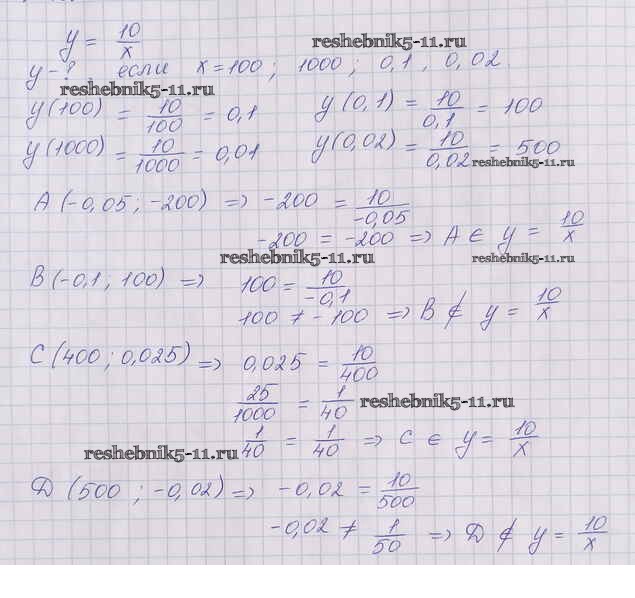 y = 10/x
reshebnik5-11.ru
y - ? если x = 100 ; 1000 ; 0,1 , 0,02
reshebnik5-11.ru
y(100) = 10/100 = 0,1
y(0,1) = 10/0,1 = 100
y(1000) = 10/1000 = 0,01
y(0,02) = 10/0,02 = 500
reshebnik5-11.ru
A (-0,05 ; -200) => -200 = 10/-0,05
-200 = -200 => A ∈ y = 10/x
reshebnik5-11.ru
reshebnik5-11.ru
B (-0,1 ; 100) => 100 = 10/-0,1
100 ≠ -100 => B ∉ y = 10/x
C (400 ; 0,025) => 0,025 = 10/400
25/1000 = 1/40
reshebnik5-11.ru
1/40 = 1/40 => C ∈ y = 10/x
reshebnik5-11.ru
D (500 ; -0,02) => -0,02 = 10/500
-0,02 ≠ 1/50 => D ∉ y = 10/x